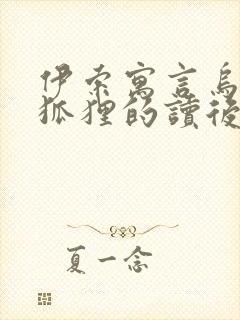 伊索寓言烏
狐狸的讀後
夏一念